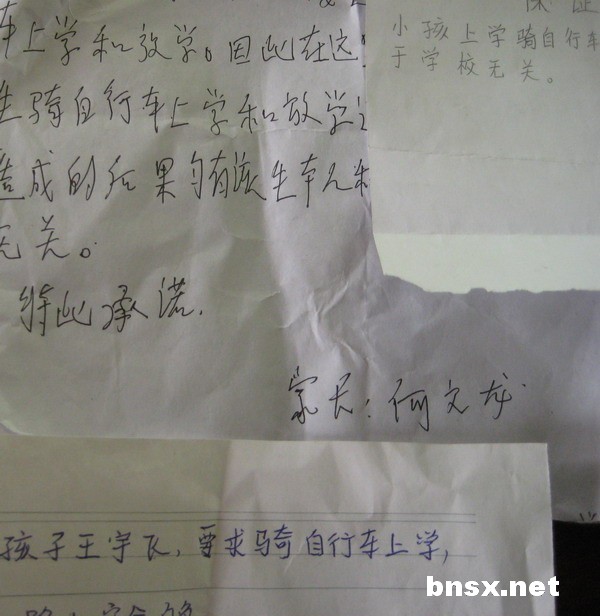 车上学和放学。因此在这
生骑自行车上学和放学
造成的后果均有该生本人
无关。
特此承诺.
家长：何文龙
保证
小孩上学骑自行车
于学校无关。
孩子王宇飞，要求骑自行车上学，
bnsx.net